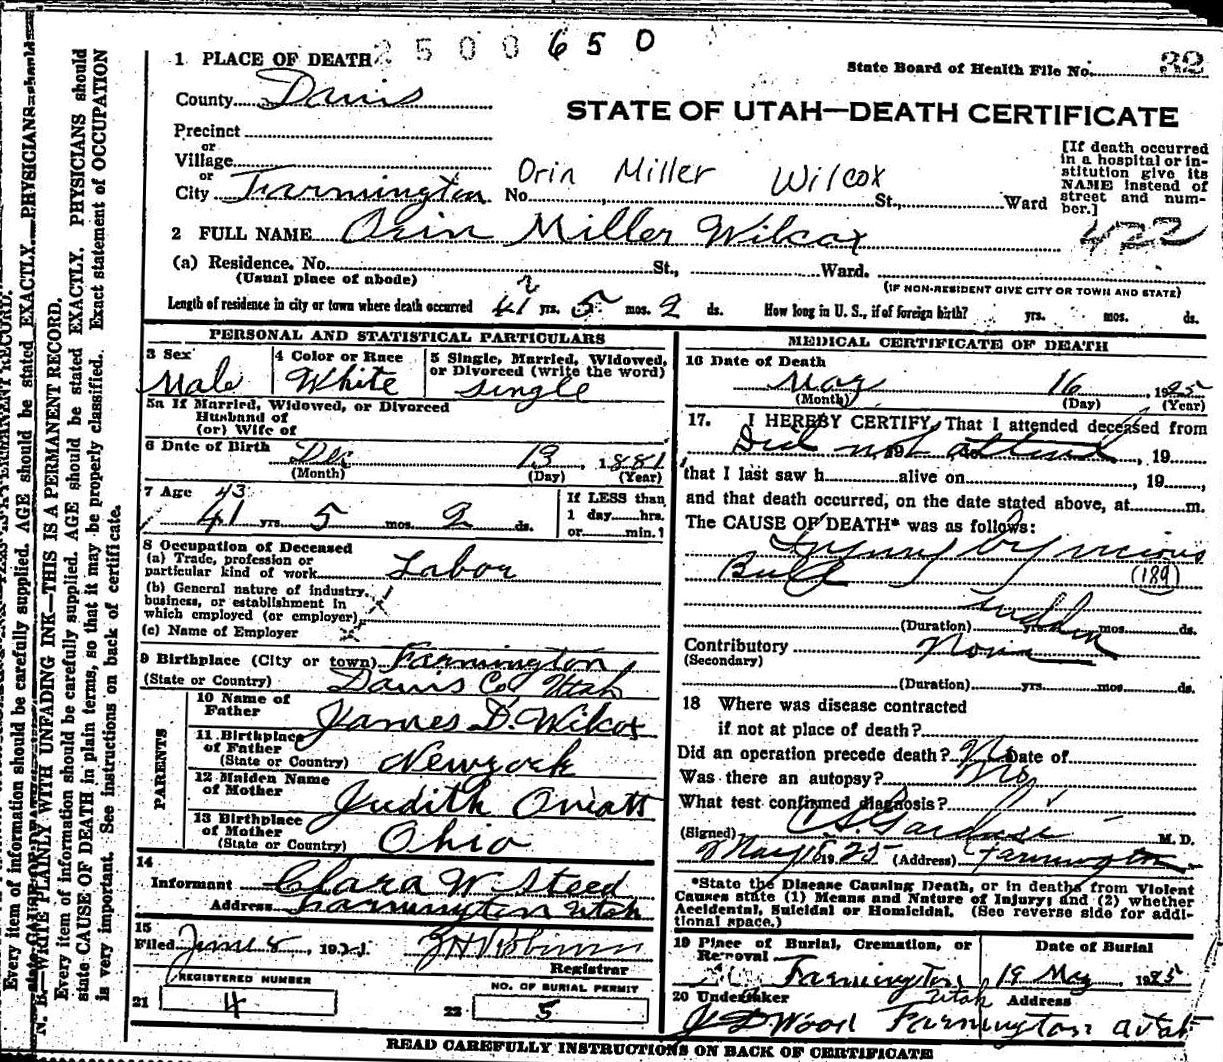 2500650
1 PLACE OF DEATH
State Board of Health File No. 32
County Davis
STATE OF UTAH—DEATH CERTIFICATE
Precinct
or
Village
or
City Farmington No. St., Ward
Orin Miller Wilcox
[If death occurred in a hospital or institution give its NAME instead of street and number.]
422
2 FULL NAME Orin Miller Wilcox
(a) Residence. No. St., Ward.
(Usual place of abode)
(IF NON-RESIDENT GIVE CITY OR TOWN AND STATE)
Length of residence in city or town where death occurred 41 yrs. 5 mos. 2 ds. How long in U. S., if of foreign birth? yrs. mos. ds.
PERSONAL AND STATISTICAL PARTICULARS
3 Sex
Male
4 Color or Race
White
5 Single, Married, Widowed,
or Divorced (write the word)
single
5a If Married, Widowed, or Divorced
Husband of
(or) Wife of
6 Date of Birth Dec 13, 1881
(Month) (Day) (Year)
7 Age 43
41 yrs. 5 mos. 2 ds.
If LESS than
1 day hrs.
or min.?
8 Occupation of Deceased
(a) Trade, profession or
particular kind of work Labor
(b) General nature of industry,
business, or establishment in
which employed (or employer) x
(c) Name of Employer x
9 Birthplace (City or town) Farmington
(State or Country) Davis Co. Utah
PARENTS
10 Name of
Father James D. Wilcox
11 Birthplace
of Father
(State or Country) Newyork
12 Maiden Name
of Mother Judith Oviatt
13 Birthplace
of Mother
(State or Country) Ohio
14
Informant Clara W Steed
Address Farmington Utah
15
Filed June 8, 192
Registrar
REGISTERED NUMBER
21 4
NO. OF BURIAL PERMIT
22 5
MEDICAL CERTIFICATE OF DEATH
16 Date of Death
May 16, 1925
(Month) (Day) (Year)
17. I HEREBY CERTIFY, That I attended deceased from
Did not attend, 19
that I last saw h alive on , 19
and that death occurred, on the date stated above, at m.
The CAUSE OF DEATH* was as follows:
Injury by vicious
Bull (189)
sudden
(Duration) yrs. mos. ds.
Contributory None
(Secondary)
(Duration) yrs. mos. ds.
18 Where was disease contracted
if not at place of death?
Did an operation precede death? No Date of
Was there an autopsy? No
What test confirmed diagnosis?
(Signed) M. D.
May 18 1925 (Address) Farmington
*State the Disease Causing Death, or in deaths from Violent
Causes state (1) Means and Nature of Injury; and (2) whether
Accidental, Suicidal or Homicidal. (See reverse side for additional space.)
19 Place of Burial, Cremation, or
Removal
Date of Burial
Farmington 19 May 1925
Utah
20 Undertaker Address
J D Wood Farmington Utah
READ CAREFULLY INSTRUCTIONS ON BACK OF CERTIFICATE
N. B.—WRITE PLAINLY WITH UNFADING INK—THIS IS A PERMANENT RECORD.
Every item of information should be carefully supplied. AGE should be stated EXACTLY. PHYSICIANS should
state CAUSE OF DEATH in plain terms, so that it may be properly classified. Exact statement of OCCUPATION
is very important. See instructions on back of certificate.
Every item of information should be carefully supplied. AGE should be stated EXACTLY. PHYSICIANS should